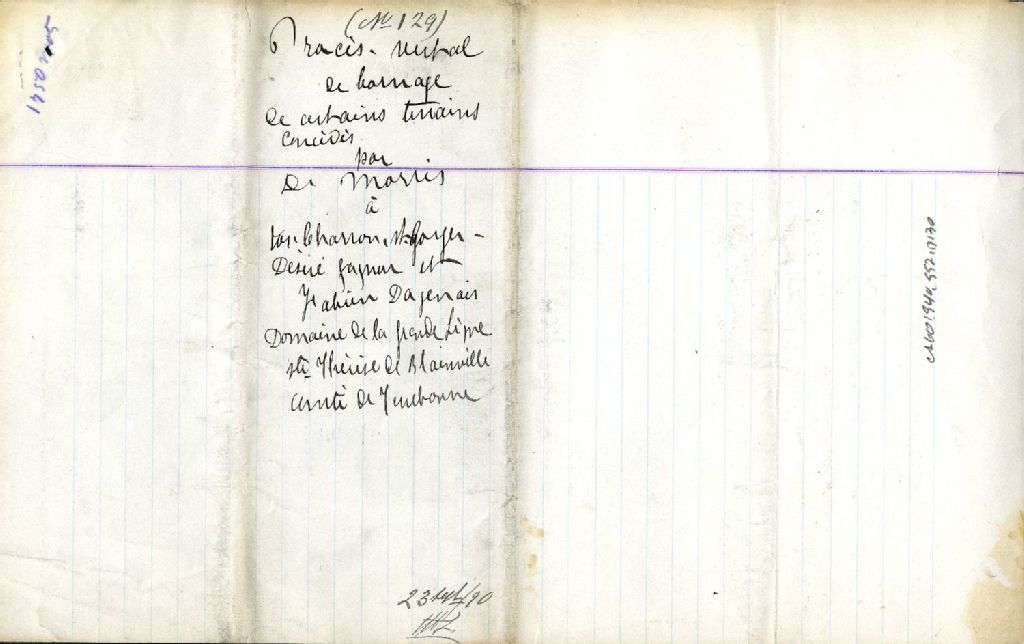 (No 129)
Procès-verbal
de bornage
de certains terrains
concédés
par
Dr Morris
à
Chasron, St Gorges -
Désiré Gagnon et
Fabien Dagenais
Domaine de la grande Ligne
Ste Thérèse de Blainville
Comté de Terrebonne
23 sept/90
CA601,S40,SS2,D130